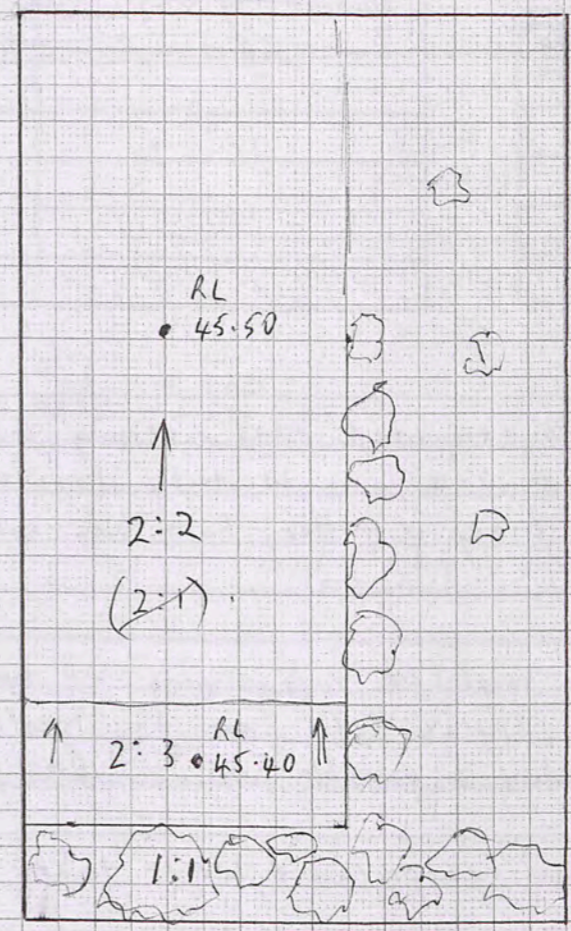 RL
45.50
2:2
(2:1)
RL
2:3 45.40
1:1